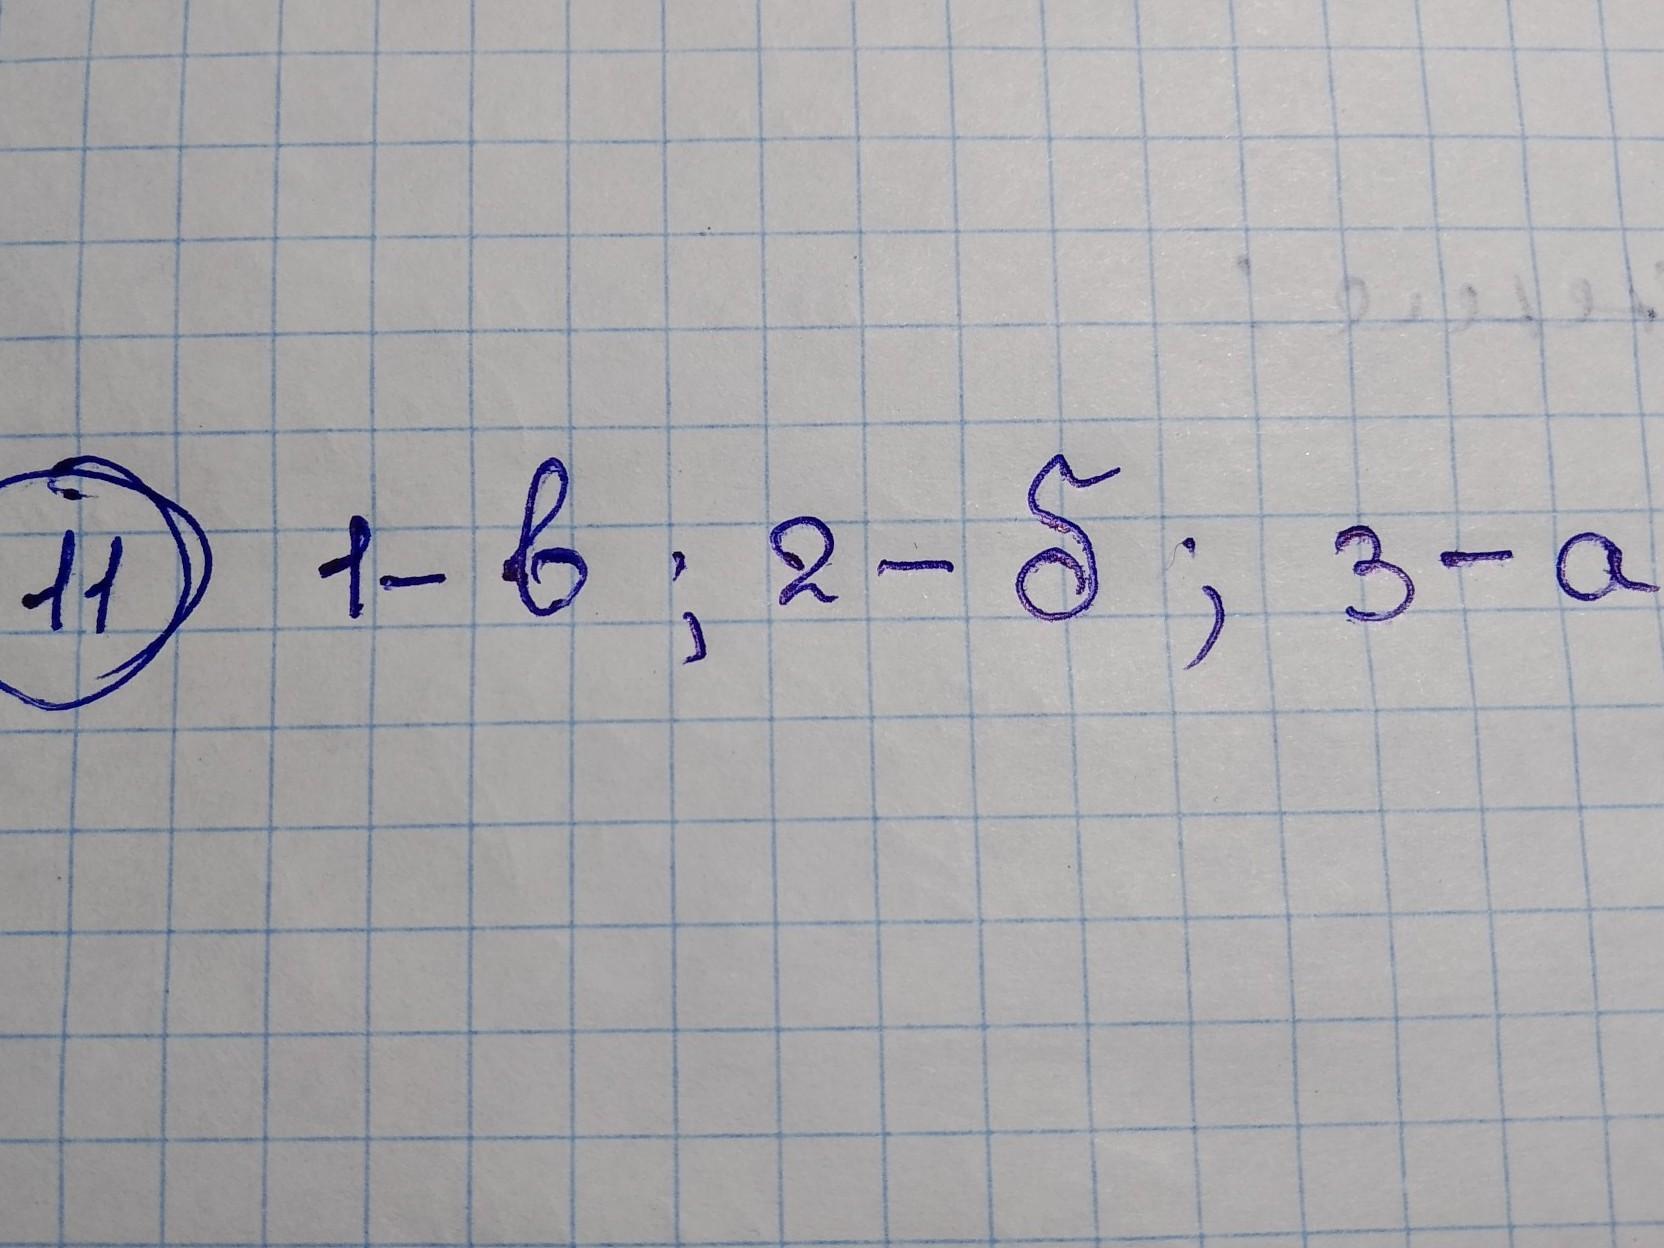 11 1 - в ; 2 - б ; 3 - а